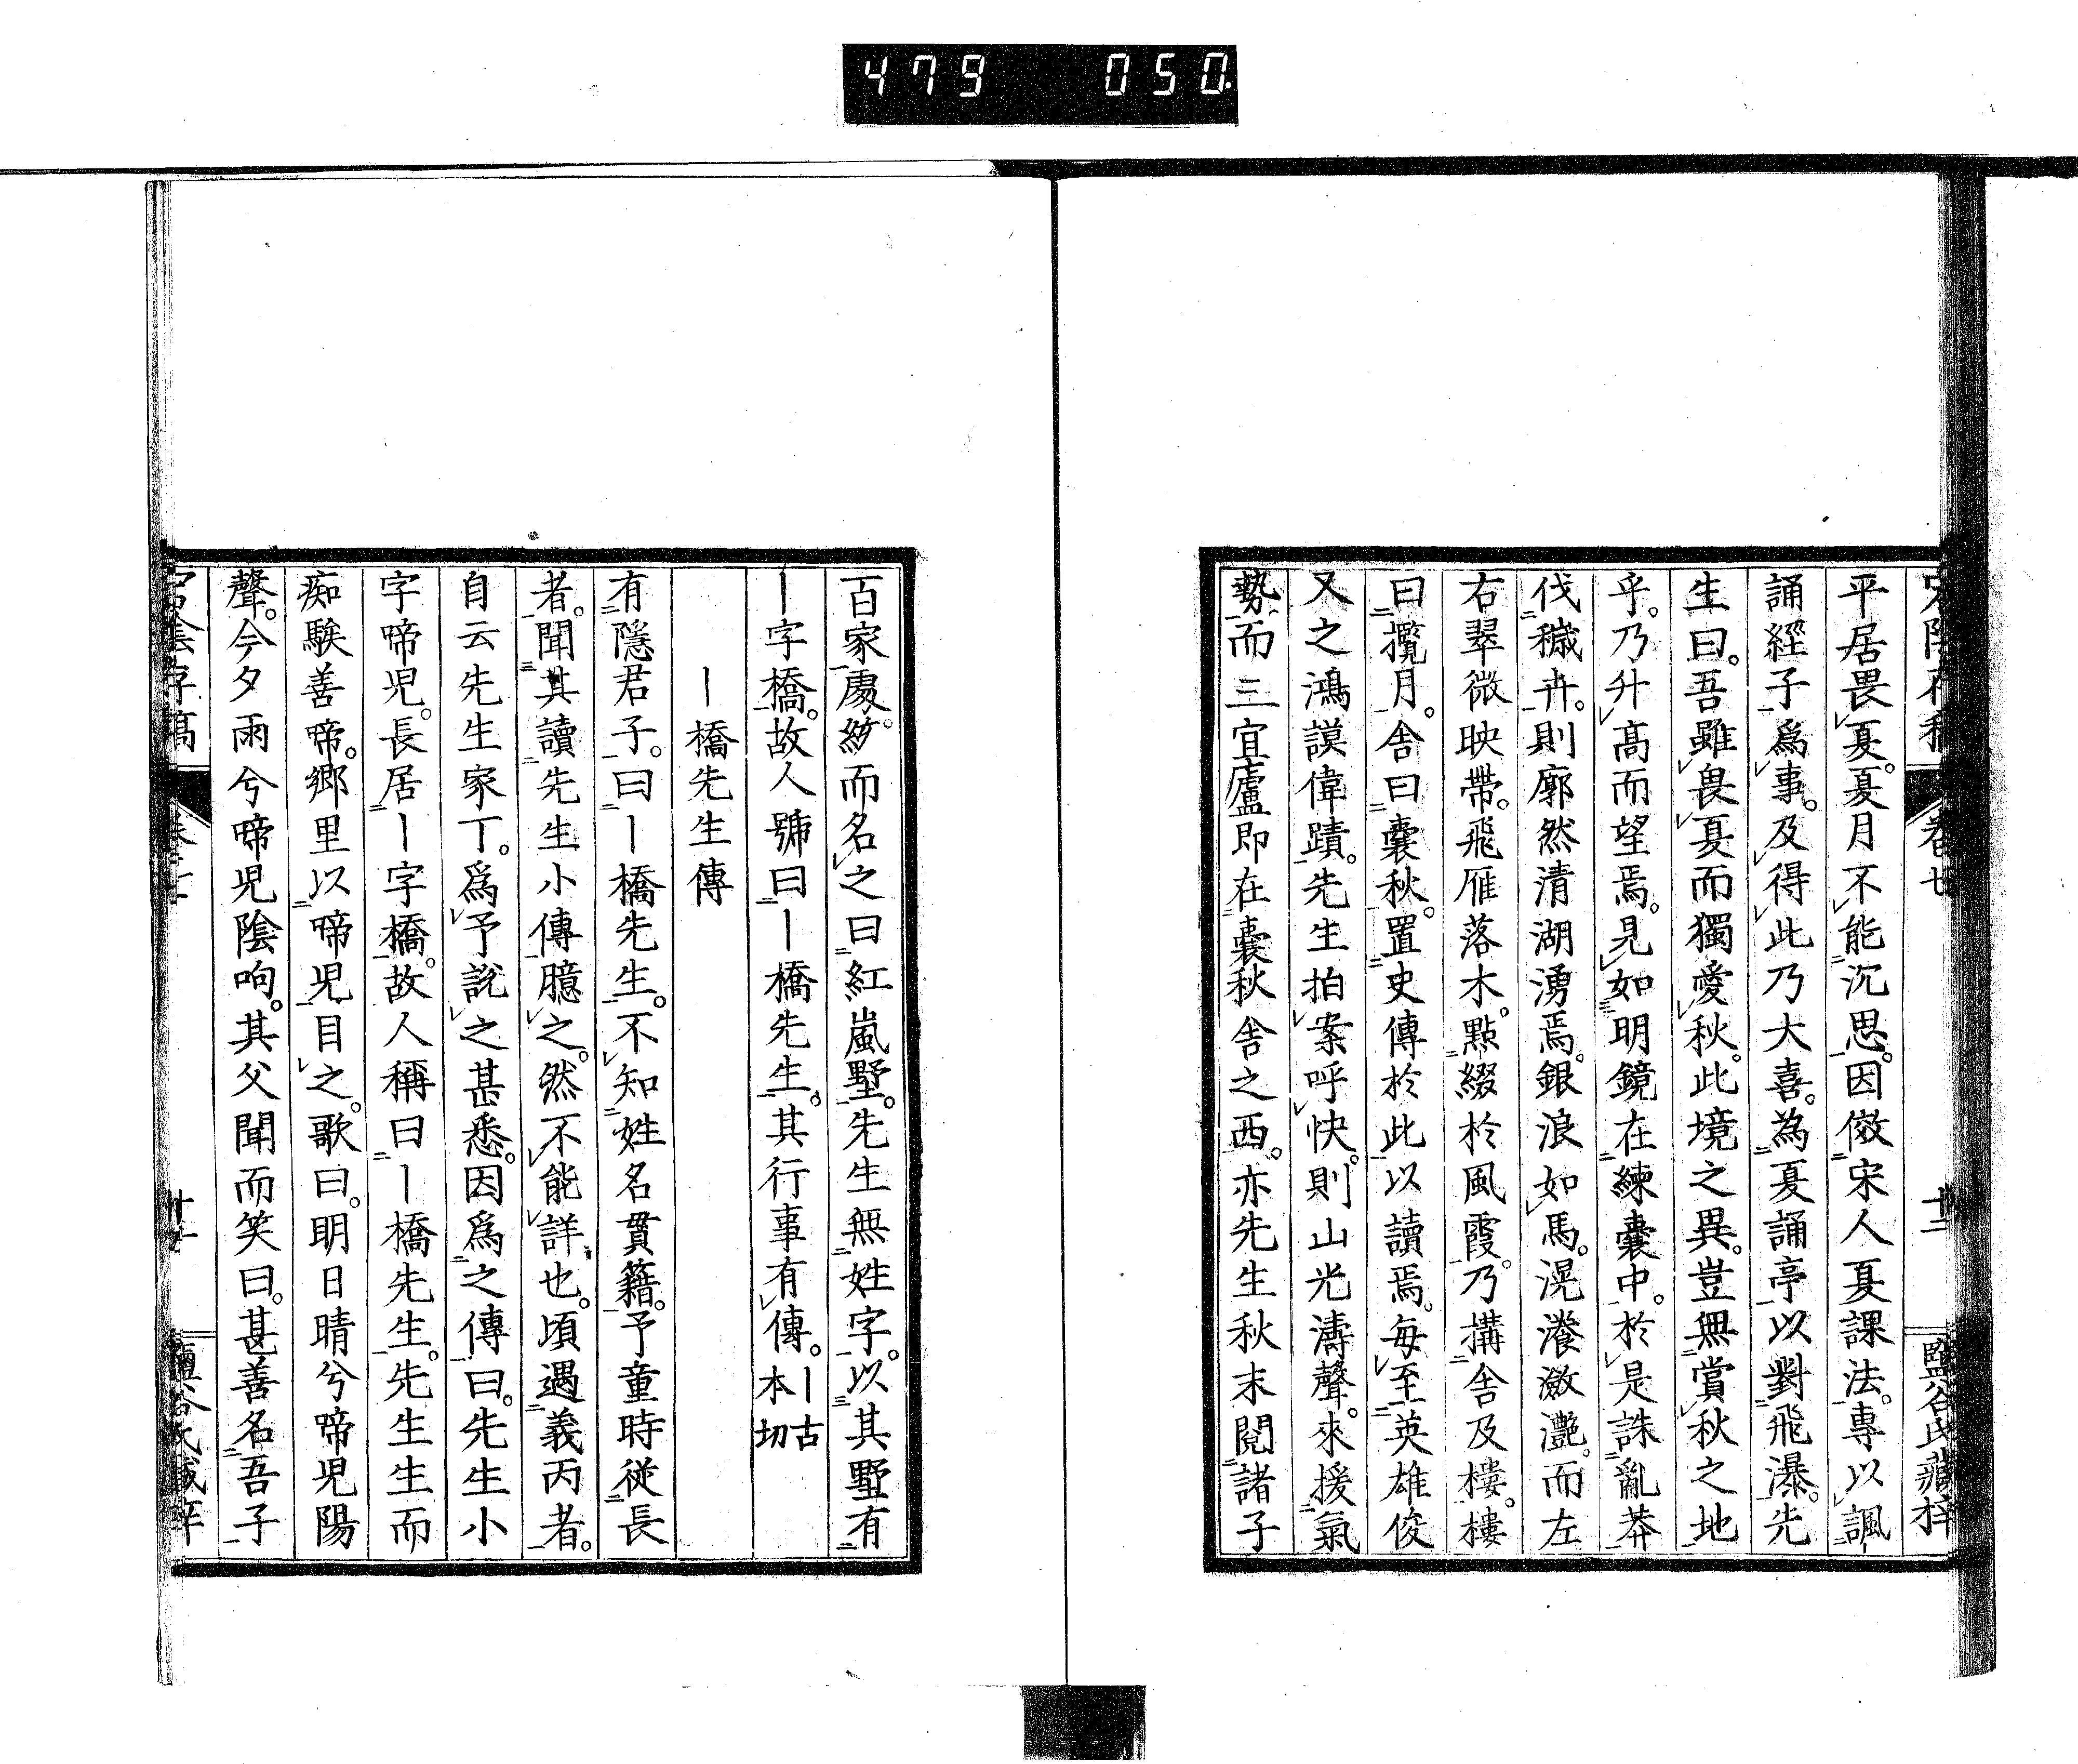 479 050
平居畏夏。夏月不能沉思。因倣宋人夏課法。專以諷
誦經子爲事。及得此乃大喜。為夏誦亭以對飛瀑。先
生曰。吾雖畏夏而獨愛秋。此境之異。豈無賞秋之地
乎。乃升高而望焉。見如明鏡在練囊中。於是誅亂莽
伐穢卉。則廓然清湖湧焉。銀浪如馬。滉瀁瀲灔。而左
右翠微映帶。飛雁落木。點綴於風霞。乃搆舍及樓。樓
曰攬月。舍曰囊秋。置史傳於此以讀焉。每至英雄俊
乂之鴻謨偉蹟。先生拍案呼快。則山光濤聲。來援氣
勢。而三宜廬即在囊秋舍之西。亦先生秋末閱諸子
卷廿
十二
鹽谷氏藏梓
百家處。紛而名之曰紅嵐墅。先生無姓字。以其墅有
丨字橋。故人號曰丨橋先生。其行事有傳。丨古本切
丨橋先生傳
有隱君子。曰丨橋先生。不知姓名貫籍。予童時從長
者。聞其讀先生小傳臆之。然不能詳也。頃遇義丙者。
自云先生家丁。爲予說之甚悉。因爲之傳曰。先生小
字啼児。長居丨字橋。故人稱曰丨橋先生。先生生而
痴騃善啼。鄉里以啼児目之。歌曰。明日晴兮啼児陽
聲。今夕雨兮啼児陰响。其父聞而笑曰。甚善名吾子